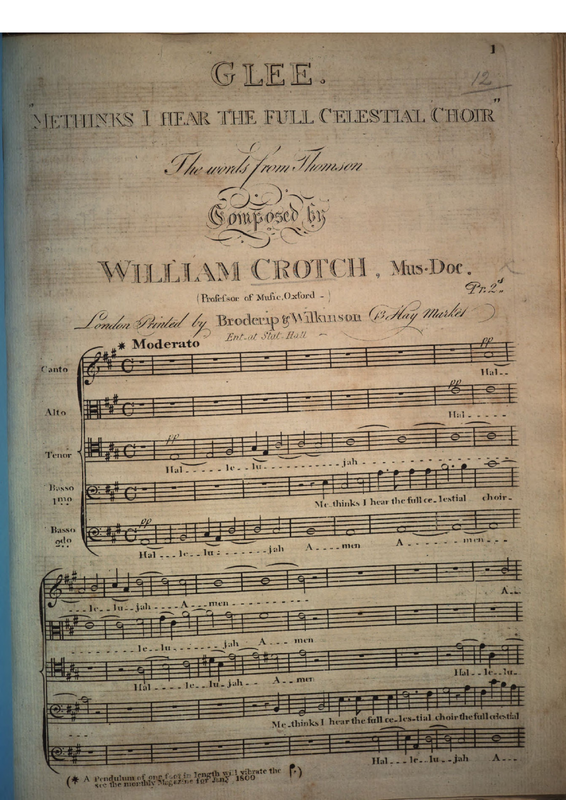 1
GLEE.
12
"METHINKS I HEAR THE FULL CELESTIAL CHOIR"
The words from Thomson
Composed by
WILLIAM CROTCH, Mus.Doc.
(Professor of Music, Oxford.)
Pr. 2s
London Printed by Broderip & Wilkinson 13 Hay Market
Ent. at Stat. Hall
* Moderato
Canto
pp
Hal--
Alto
pp
Hal--
Tenor
pp
Hal--le-lu--jah
Basso
1mo
Me thinks I hear the full ce-lestial choir-
Basso
2do
pp
Hal--le--lu--jah A--men A--men--
--le-lu-jah A-men A--
--le--lu--jah A--men
Hal--le--lu--jah A--men Hal--le-lu-
Me-thinks I hear the full ce-les-tial choir the full celestial
Hal--le-lu-jah A--
(* A Pendulum of one foot in length will vibrate the .)
see the monthly Magazine for Jany. 1800